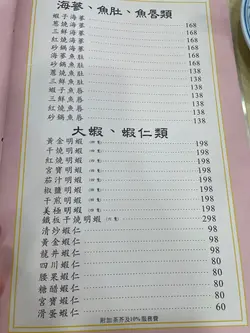 海蔘、魚肚、魚唇類
蝦子海蔘 168
蔥燒海蔘 168
三鮮海蔘 168
紅燒海蔘 168
砂鍋海蔘 168
三鮮魚肚 138
砂鍋魚肚 138
蔥燒魚唇 138
三鮮魚唇 138
蝦子魚唇 138
紅燒魚唇 138
砂鍋魚唇 138
大蝦、蝦仁類
黃金明蝦 198
干燒明蝦 198
紅燒明蝦 198
宮寶明蝦 198
茄汁明蝦 198
椒鹽明蝦 198
干煎明蝦 198
美極明蝦 198
鐵板干燒明蝦 298
清炒蝦仁 98
黃金蝦仁 98
龍井蝦仁 98
四川蝦仁 80
腰果蝦仁 80
糖醋蝦仁 80
宮寶蝦仁 80
滑蛋蝦仁 60
附加茶芥及10%服務費